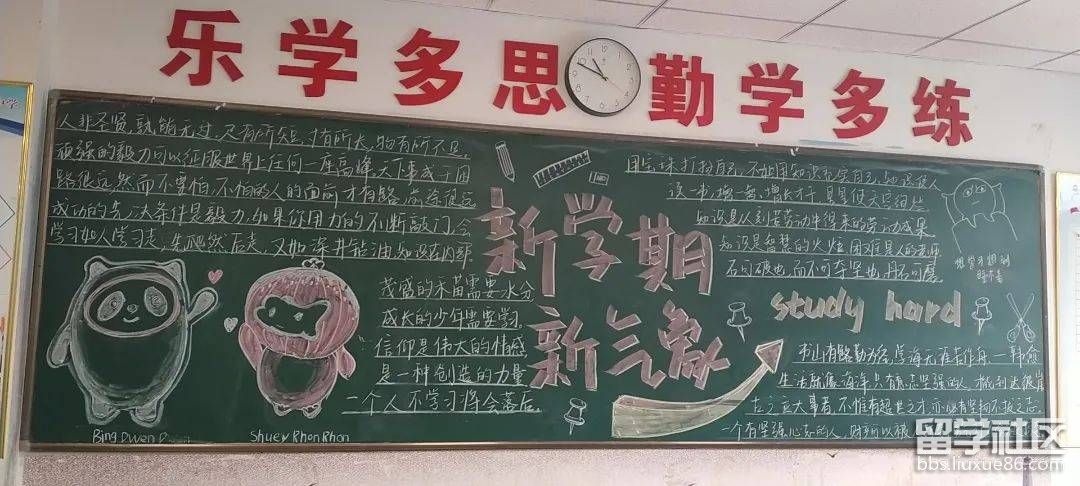 乐学多思 勤学多练
人非圣贤,孰能无过,尺有所短,寸有所长,物有所不足,
顽强的毅力可以征服世界上任何一座高峰,天下事成于困
路很远,然而不害怕,不怕的人的面前才有路,前途很远
成功的先决条件是毅力,如果你用力的不断敲门,会
学习如人学习走,先爬然后走,又如深井能油,知识在内部
茂盛的禾苗需要水分
成长的少年需要学习
信仰是伟大的情感
是一种创造的力量
一个人不学习将会落后
Bing Dwen D
Shuey Rhon Rhon
新学期
新气象
用宝珠打扮自己,不如用知识充实自己,知识使人
知识是从刻苦劳动中得来的
知识是智慧的火炬 困难是人的老师
石可破也,而不可夺坚也,丹石可磨
study hard
书山有路勤为径,学海无涯苦作舟 — 韩愈
生活就像海洋,只有意志坚强的人,才能到达彼岸
古之立大事者,不惟有超世之才,亦必有坚韧不拔之志
一个有坚强心志的人,财产可以被
留学社区
bbs.liuxue86.com